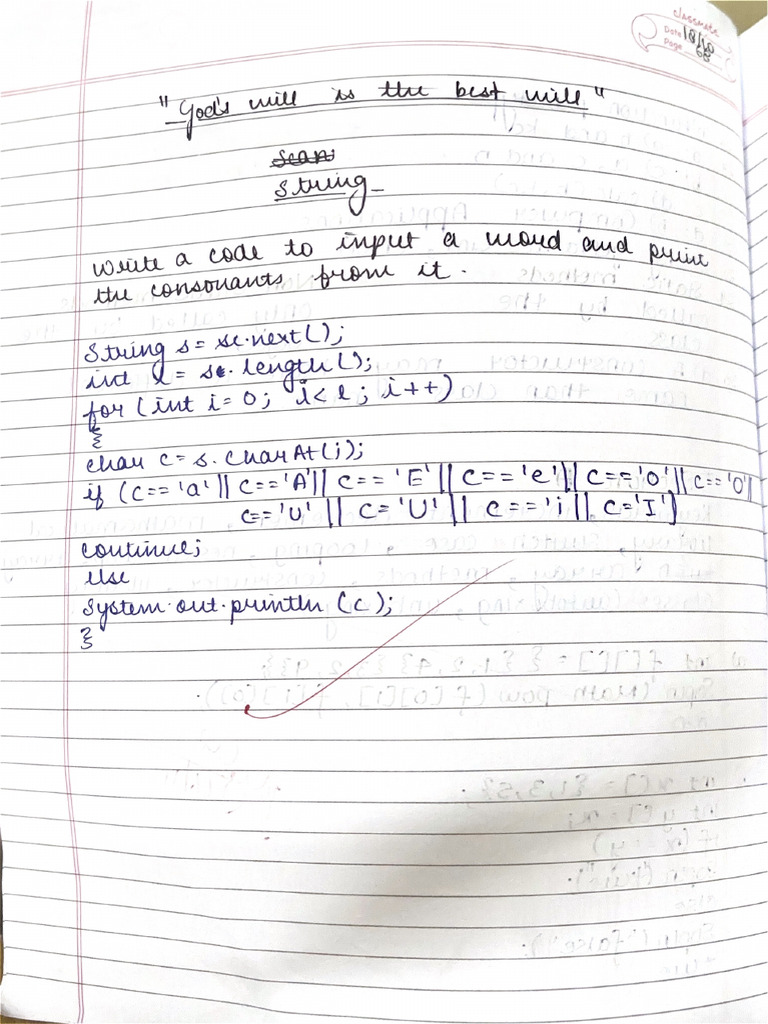 classmate
Date 18/10
Page 65
"God's will is the best will"
String
Write a code to input a word and print
the consonants from it.
String s = sc.next();
int l = s. length();
for (int i = 0; i < l ; i++)
{
char c = s. charAt(i);
if (c=='a'|| c=='A'|| c== 'E'|| c=='e'|| c=='o'|| c=='O'||
c=='u' || c= 'U' || c=='i || c='I')
continue;
else
System.out.println (c);
}